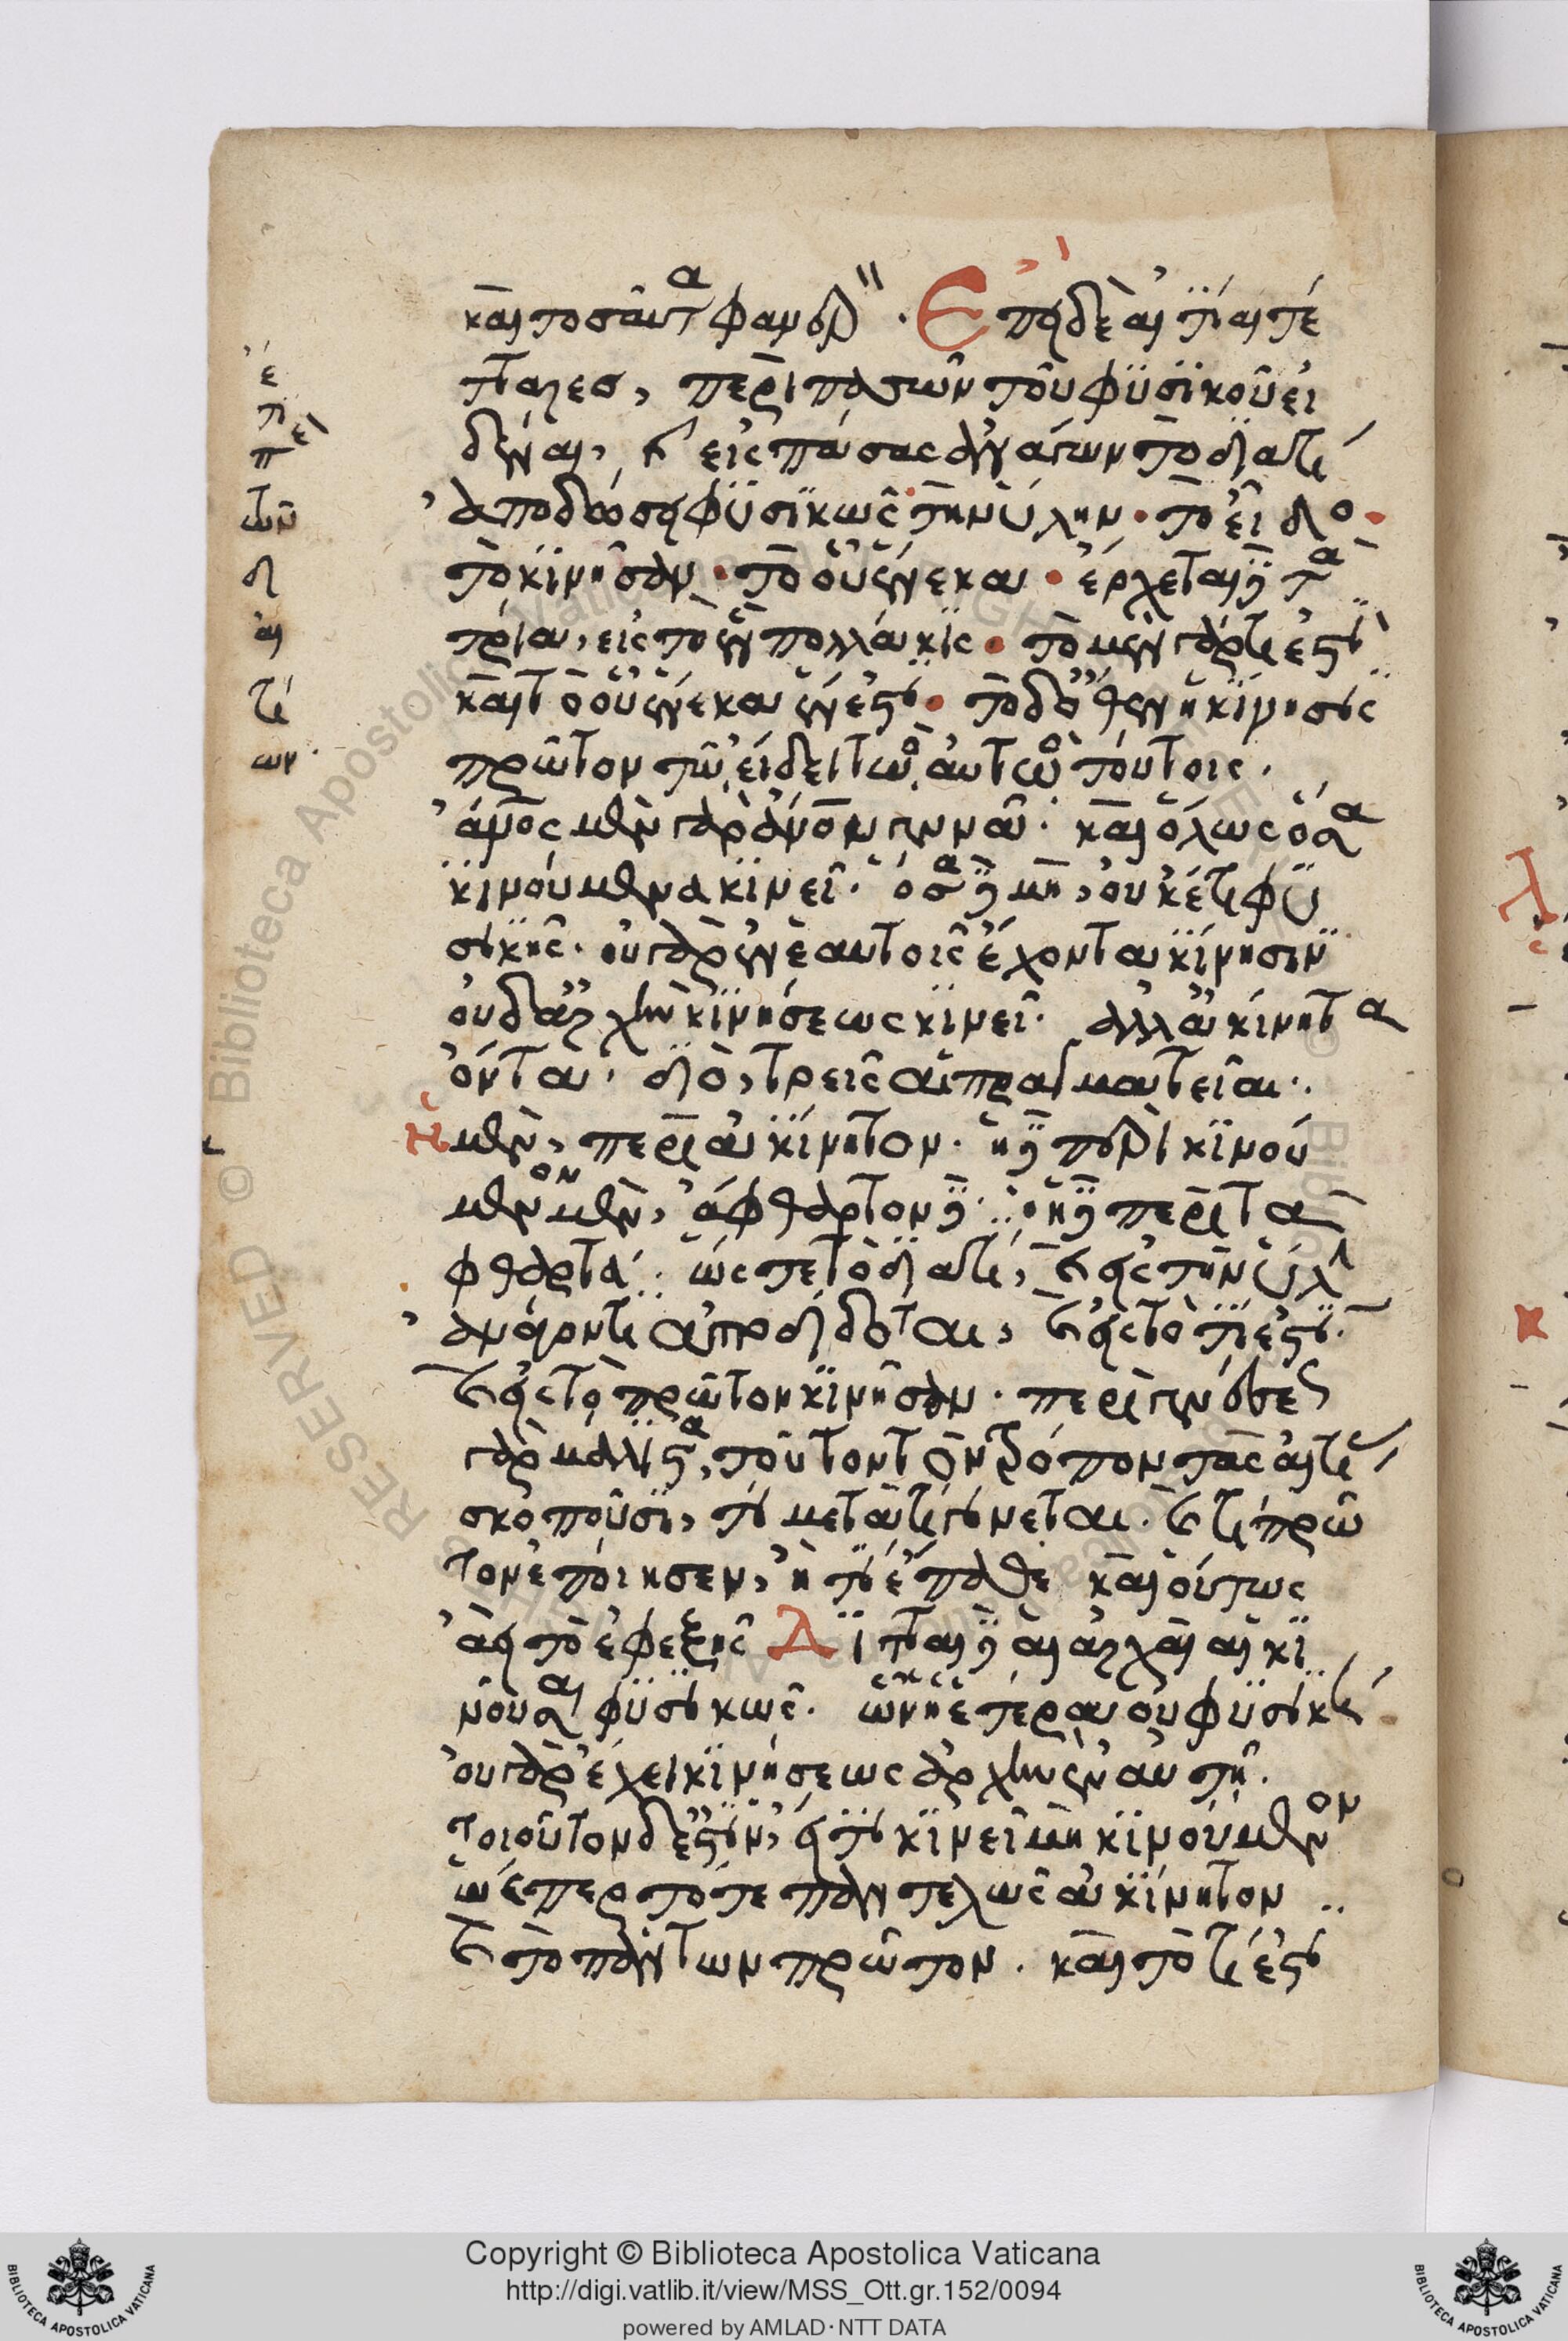 καὶ τοσαῦτα φανερόν. Ἐπεὶ δὲ αἱ αἰτίαι τέ
τταρες, περὶ πασῶν τοῦ φυσικοῦ εἰ
δέναι, καὶ εἰς πάσας ἀνάγων τὸ διατί
ἀποδώσει φυσικῶς τὴν ὕλην· τὸ εἶδο·
τὸ κινῆσαν· τὸ οὗ ἕνεκα· ἔρχεται δὲ τὰ
τρία, εἰς τὸ ἓν πολλάκις· τὸ μὲν γάρ τι ἐστὶ
καὶ τὸ οὗ ἕνεκα ἕν ἐστι· τὸ δ' ὅθεν ἡ κίνησις
πρῶτον τῷ εἴδει τῷ αὐτῷ τούτοις.
ἄνος μὲν γὰρ ἄνον γεννᾷ. καὶ ὅλως ὅσα
κινούμενα κινεῖ. ὅσα δὲ μὴ, οὐκέτι φυ
σικῆς. οὐ γὰρ ἐν ἑαυτοῖς ἔχοντα κίνησιν
οὐδ' ἀρχὴν κινήσεως κινεῖ. ἀλλ' ἀκίνητα
ὄντα. διὸ, τρεῖς αἱ πραγματεῖαι.
Ἡ μὲν, περὶ ἀκίνητον. ἡ δὲ περὶ κινού
μενον μὲν, ἄφθαρτον δέ. ἡ δὲ περὶ τὰ
φθαρτά. ὥστε τὸ διατί, καὶ εἰς τὴν ὕλην
ἀνάγοντι ἀποδίδοται, καὶ εἰς τὸ τί ἐστι.
καὶ εἰς τὸ πρῶτον κινῆσαν. περὶ γενέσεως
γὰρ μάλιστα, τοῦτον τὸν τρόπον τὰς αἰτίας
σκοποῦσι, τί μετὰ τί γίνεται. καὶ τί πρῶ
τον ἐποίησεν, ἢ τί ἔπαθε καὶ οὕτως
ἀεὶ τὸ ἐφεξῆς Διτταὶ δὲ αἱ ἀρχαὶ αἱ κι
νοῦσαι φυσικῶς. ὧν ἡ ἑτέρα οὐ φυσική.
οὐ γὰρ ἔχει κινήσεως ἀρχὴν ἐν αὑτῇ.
τοιοῦτον δ' ἐστὶν, εἴ τι κινεῖ μὴ κινούμενον
ὥσπερ τό τε παντελῶς ἀκίνητον
καὶ τὸ πάντων πρῶτον. καὶ τὸ τί ἐστι
Copyright © Biblioteca Apostolica Vaticana
http://digi.vatlib.it/view/MSS_Ott.gr.152/0094
powered by AMLAD·NTT DATA